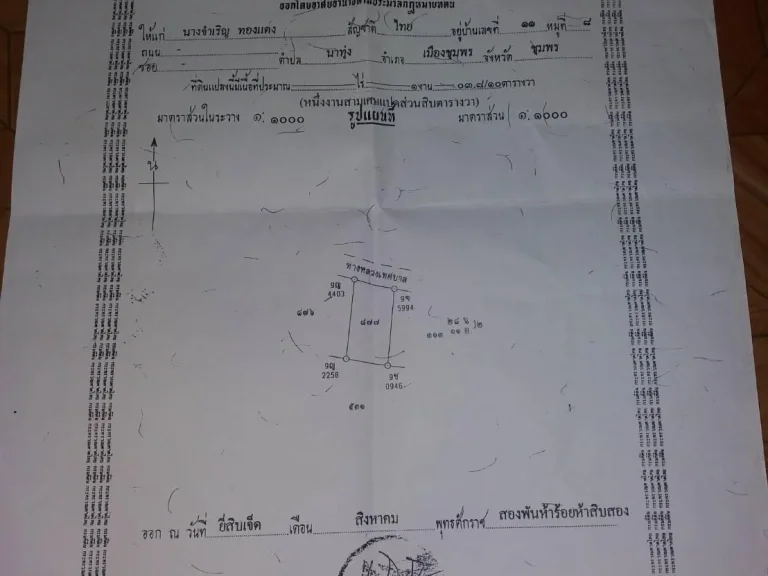 ออกโดยอาศัยอำนาจตามประมวลกฎหมายที่ดิน
ให้แก่ นางจำเริญ ทองแดง สัญชาติ ไทย อยู่บ้านเลขที่ ๑๑ หมู่ที่ ๘
ถนน - ตำบล นาทุ่ง อำเภอ เมืองชุมพร จังหวัด ชุมพร
ซอย -
ที่ดินแปลงนี้มีเนื้อที่ประมาณ - ไร่ ๑ งาน ๐๓.๘/๑๐ ตารางวา
(หนึ่งงานสามเศษแปดส่วนสิบตารางวา)
มาตราส่วนในระวาง ๑: ๑๐๐๐ รูปแผนที่ มาตราส่วน ๑: ๑๐๐๐
น
ทางหลวงเทศบาล
9ญ
4403
9ช
5994
๘๗๖
๘๗๗
9ญ
2258
9ช
0946
๕๓๑
ออก ณ วันที่ ยี่สิบเจ็ด เดือน สิงหาคม พุทธศักราช สองพันห้าร้อยห้าสิบสอง